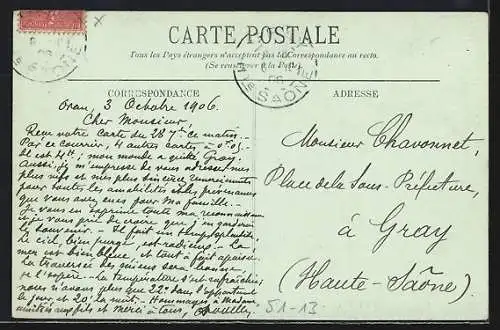 CARTE POSTALE
Tous les Pays étrangers n'acceptent pas la Correspondance au recto.
(Se renseigner à la Poste)
CORRESPONDANCE
ADRESSE
Oran, 3 Octobre 1906.
Cher Monsieur,
Reçu votre Carte du 28 7bre ce matin.
Par ce courrier, 4 autres cartes à 0f05.
mon monde a quitté Gray.
Aussi, je m'empresse de vous adresser mes
plus vifs et mes plus sincères remerciements
pour toutes les amabilités et les prévenances
que vous avez eues pour ma famille.
Je vous en exprime toute ma reconnaissance
et je vous prie de croire que j'en garderai
le souvenir. - Il fait un temps splendide,
Le ciel, bien purgé, est radieux. - La
mer est bien bleue et tout à fait apaisée.
La traversée des miens sera heureuse
je l'espère. - La température s'est rafraîchie;
nous n'avons plus que 22° dans l'appartement
le jour, et 20° la nuit. - Hommages à Madame
amitiés aux fils et Merci à tous,
Monsieur Chavonnet,
Place de la Sous-Préfecture,
à Gray
(Haute-Saône)
51-13